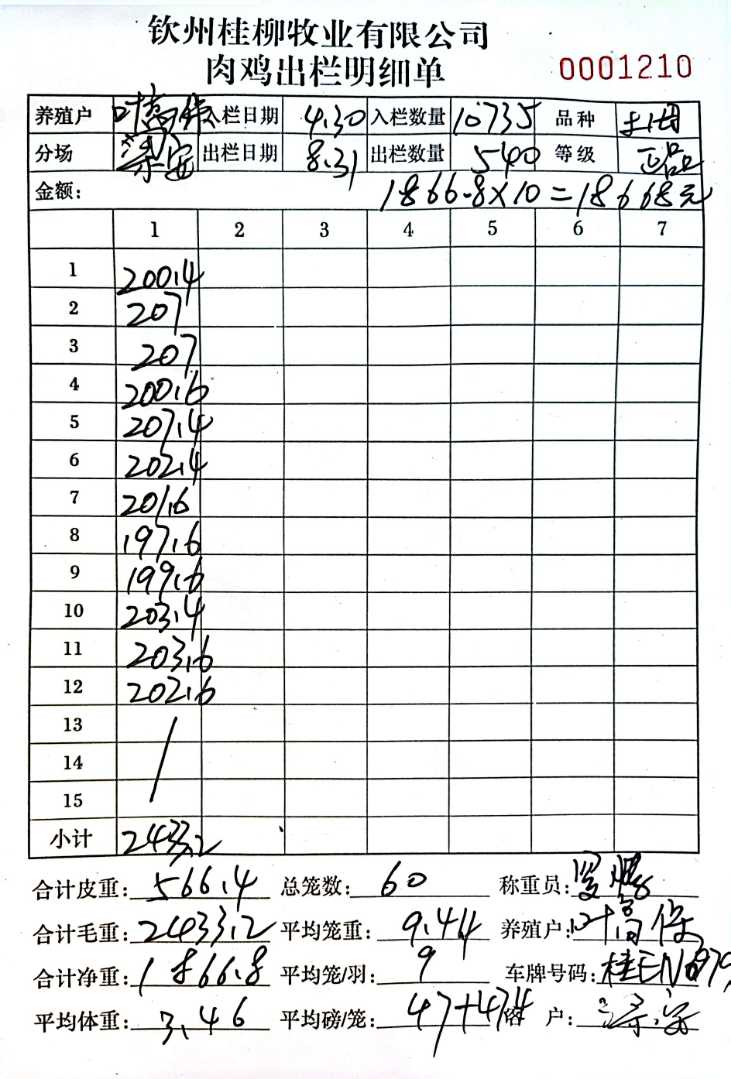 钦州桂柳牧业有限公司
肉鸡出栏明细单 0001210
养殖户 叶高 入栏日期 4.30 入栏数量 10735 品种
分场 出栏日期 8.31 出栏数量 540 等级 正品
金额: 1866.8×10=18668元
1 2 3 4 5 6 7
1 200.4
2 207
3 207
4 200.6
5 207.4
6 202.4
7 201.6
8 197.6
9 199.6
10 203.4
11 203.6
12 202.6
13 /
14
15
小计 2433.2
合计皮重: 566.4 总笼数: 60 称重员:
合计毛重: 2433.2 平均笼重: 9.44 养殖户: 叶高
合计净重: 1866.8 平均笼/羽: 9 车牌号码:
平均体重: 3.46 平均磅/笼: 47+474 户: